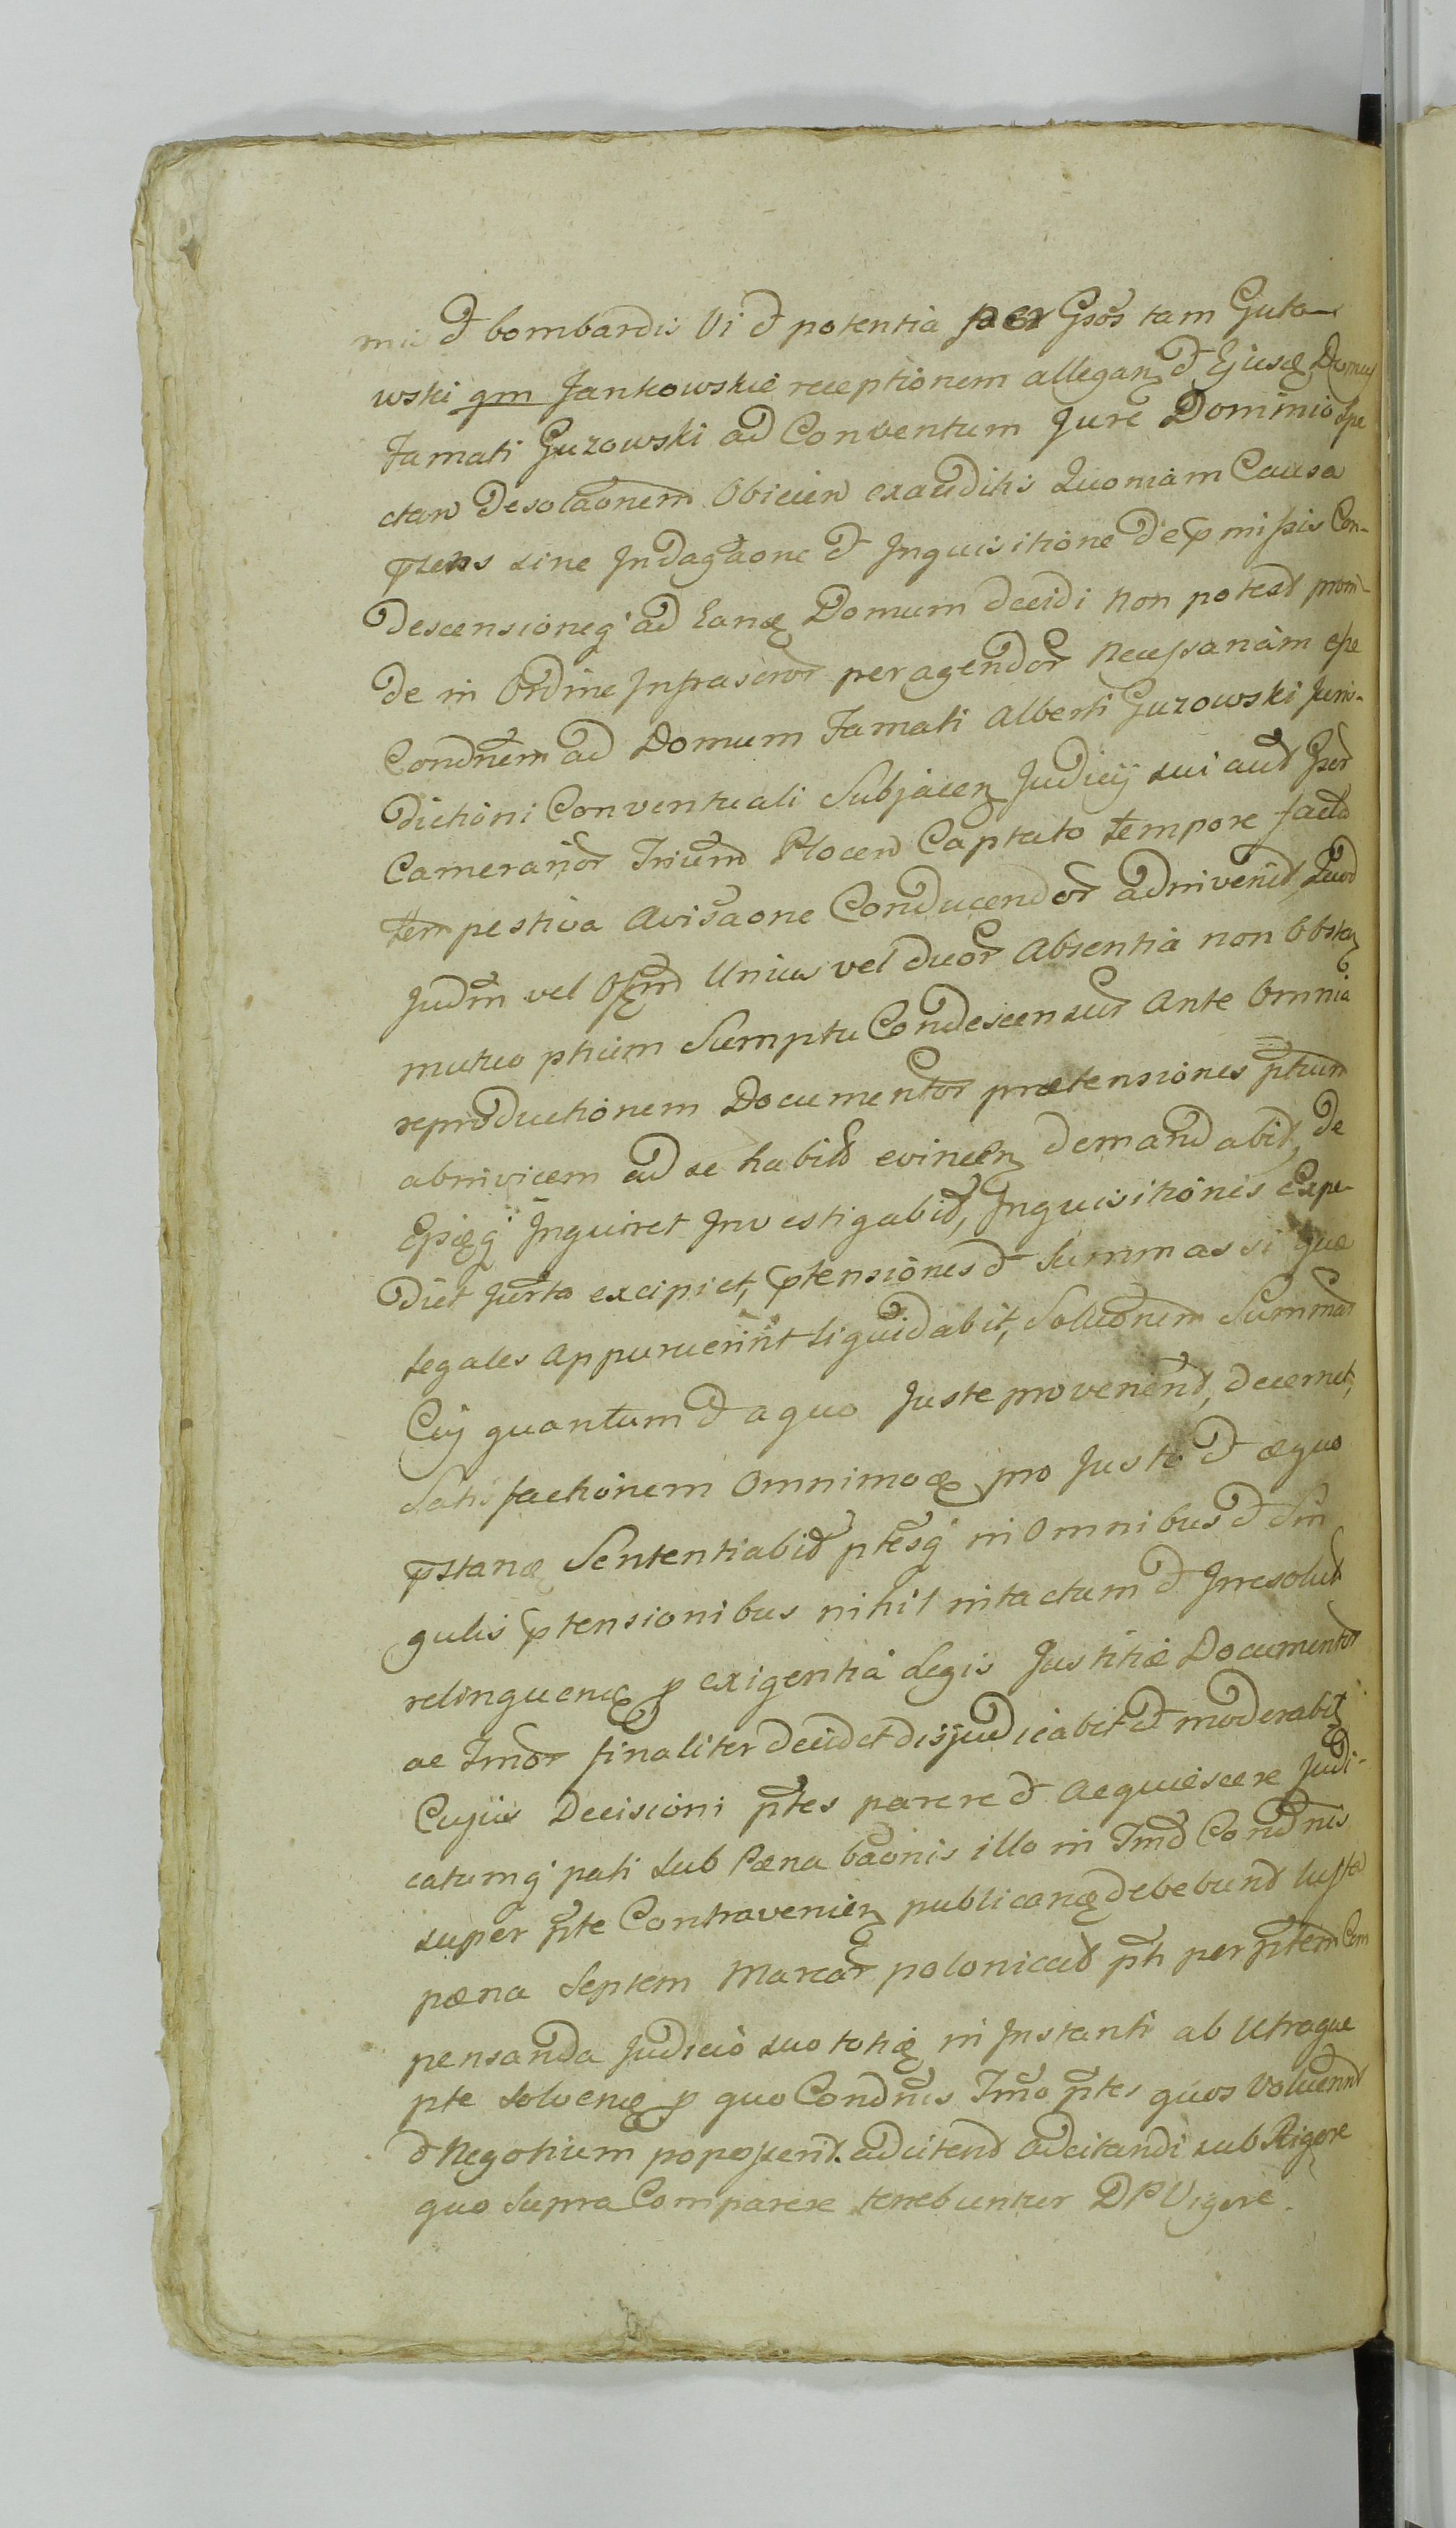 mis et bombardis Vi et potentia per Gsos tam Guta-
wski qm Jankowskie receptionem allegan et Ejusd Domus
Famati Guzowski ad Conventum Jure Dominio Spe
ctan Desolaonem Obicien exauditis Quoniam Causa
pñs sine Indagaone et Inquisitione de pmissis Con-
descensioneq ad Eand Domum decidi non potest proin-
de in Ordine Infrascror peragendor Necessariam esse
Condnem ad Domum Famati Alberti Guzowski Juris-
dictioni Conventuali Subjacen Judicy sui aut
Camerarior Trium Plocen Captato tempore facta
tempestiva Avisaone Conducendor adinvenit, Quod
Judm vel Offm Unius vel duor Absentia non Obstan
mutuo ptium Sumptu Condescensur Ante Omnia
reproductionem Documentor prætensiones ptium
abinvicem ad se habit evincen demandabit, de
Epsq Inquiret Investigabit, Inquisitiones Expe-
diet Jurta excipiet, ptensiones et Summas si quæ
legales Appuruerint liquidabit, Soluonem Summar
Cuj quantum et a quo Juste provenerit, decernet,
Satisfactionem Omnimod pro Justo et æquo
pstand Sententiabit ptesq in Omnibus et Sin
gulis ptensionibus nihil intactum et Irresolut
relinquend p exigentia Legis Justitiæ Documentor
ac Jmor finaliter decidet disjudicabit et moderabit
Cujus Decisioni ptes parere et Acquiescere Judi-
catumq pati sub Pæna baonis illo in Tmo Condnis
super pte Contravenien publicand debebunt Lusta
pæna Septem Marcar polonical pti per ptem Com
pensanda Judicio suo toties in Instanti ab Utraque
pte solvend p quo Condnis Tmo ptes quos Voluerint
et Negotium poposcerit adcitent Adcitandi sub Rigore
quo supra Comparere tenebuntur DP Vigore.